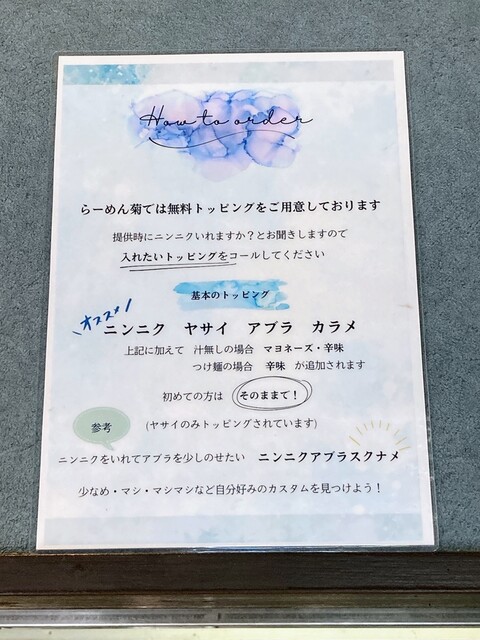 How to order
らーめん菊では無料トッピングをご用意しております
提供時にニンニクいれますか？とお聞きしますので
入れたいトッピングをコールしてください
基本のトッピング
オススメ！
ニンニク ヤサイ アブラ カラメ
上記に加えて 汁無しの場合 マヨネーズ・辛味
つけ麺の場合 辛味 が追加されます
初めての方は そのままで！
(ヤサイのみトッピングされています)
参考
ニンニクをいれてアブラを少しのせたい ニンニクアブラスクナメ
少なめ・マシ・マシマシなど自分好みのカスタムを見つけよう！